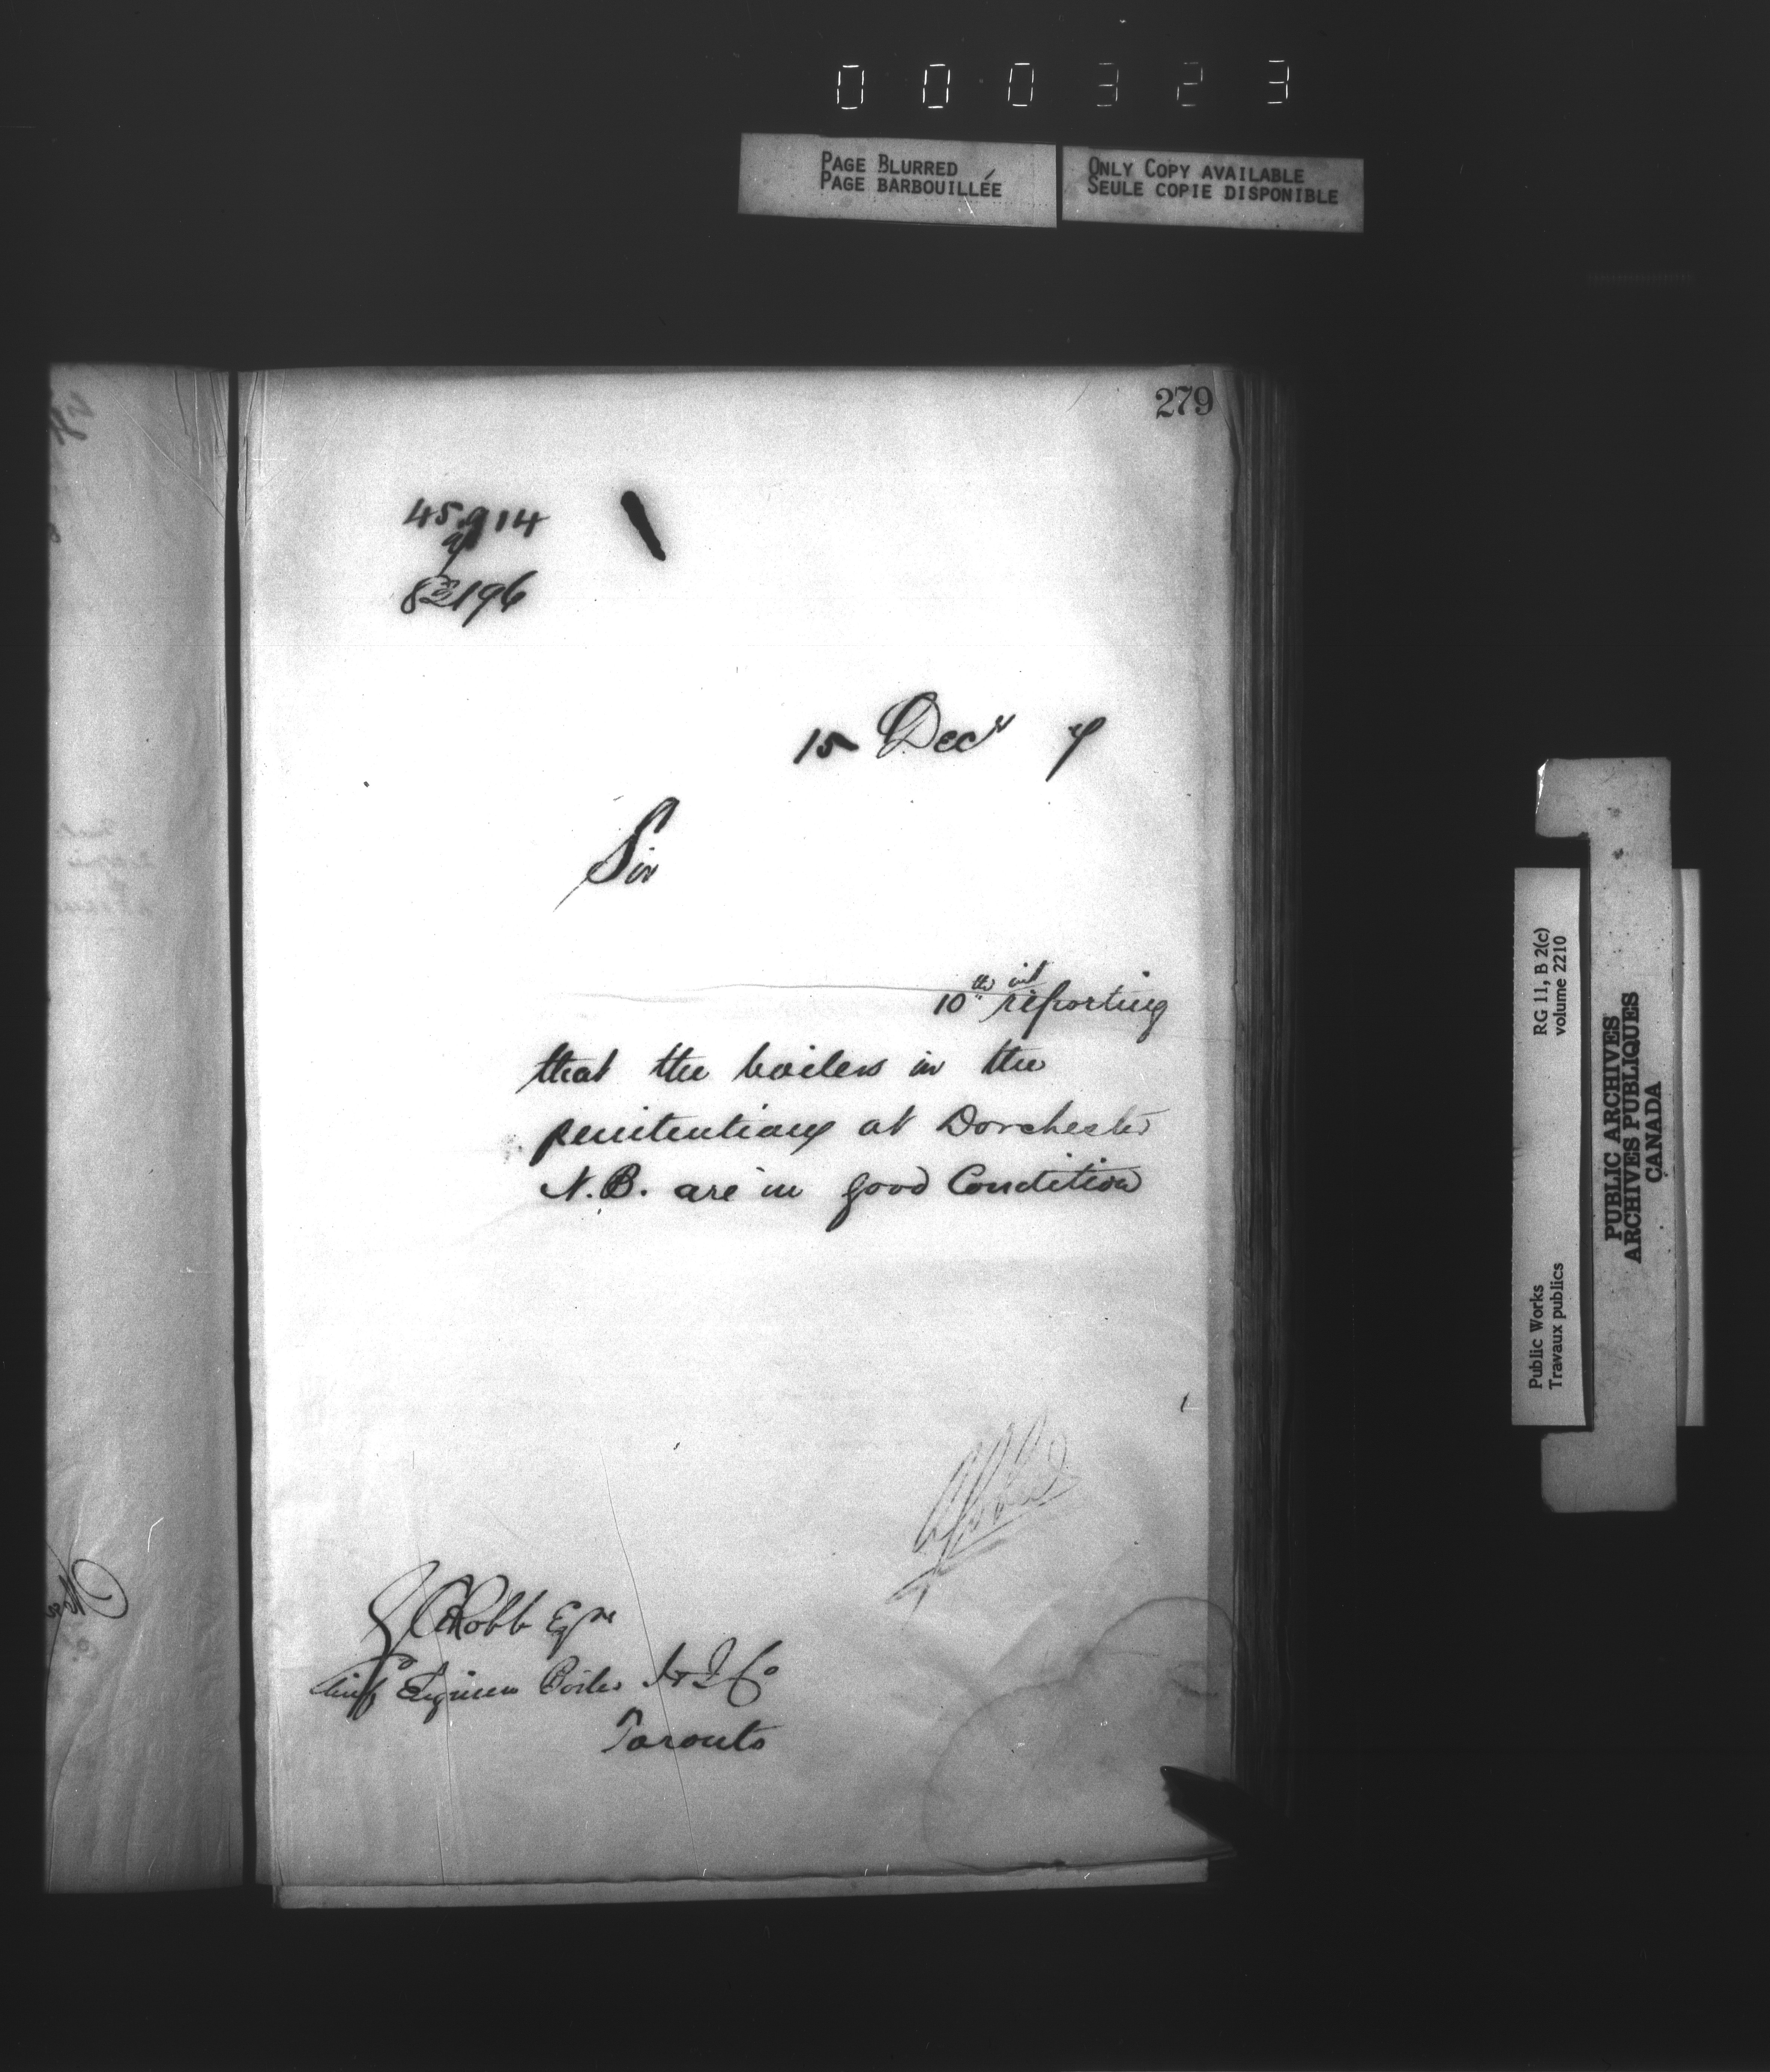 000323
PAGE BLURRED
PAGE BARBOUILLÉE
ONLY COPY AVAILABLE
SEULE COPIE DISPONIBLE
279
45.914
82196
15 Decr 7
Sir
10th inst reporting
that the boilers in the
penitentiary at Dorchester
N.B. are in good Condition
G C Robb Esqre
Chief Engineer Boiler I & I Co
Toronto
RG 11, B 2(c)
volume 2210
Public Works
Travaux publics
PUBLIC ARCHIVES
ARCHIVES PUBLIQUES
CANADA